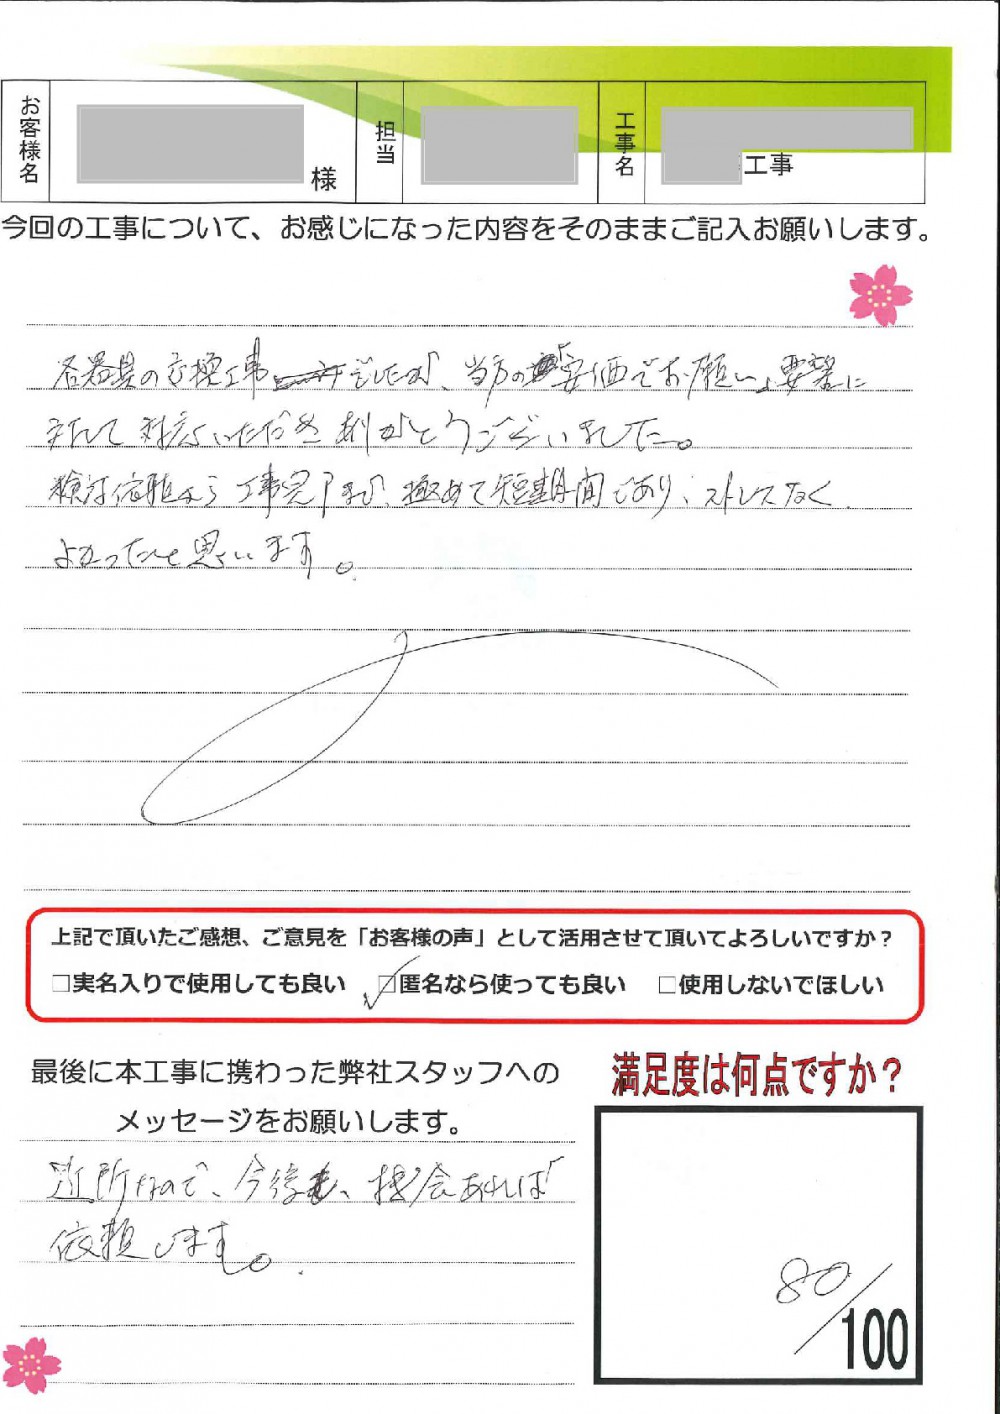 お客様名
様
担当
工事名
工事
今回の工事について、お感じになった内容をそのままご記入お願いします。
各器具の交換工事でしたが、当方の安価でお願い、要望に
対して対応いただきありがとうございました。
検討依頼から工事完了まで、極めて短期間であり、ストレスなく
よかったと思います。
上記で頂いたご感想、ご意見を「お客様の声」として活用させて頂いてよろしいですか？
□実名入りで使用しても良い ☑匿名なら使っても良い □使用しないでほしい
最後に本工事に携わった弊社スタッフへの
メッセージをお願いします。
近所なので、今後も、機会あれば
依頼します。
満足度は何点ですか？
80/100